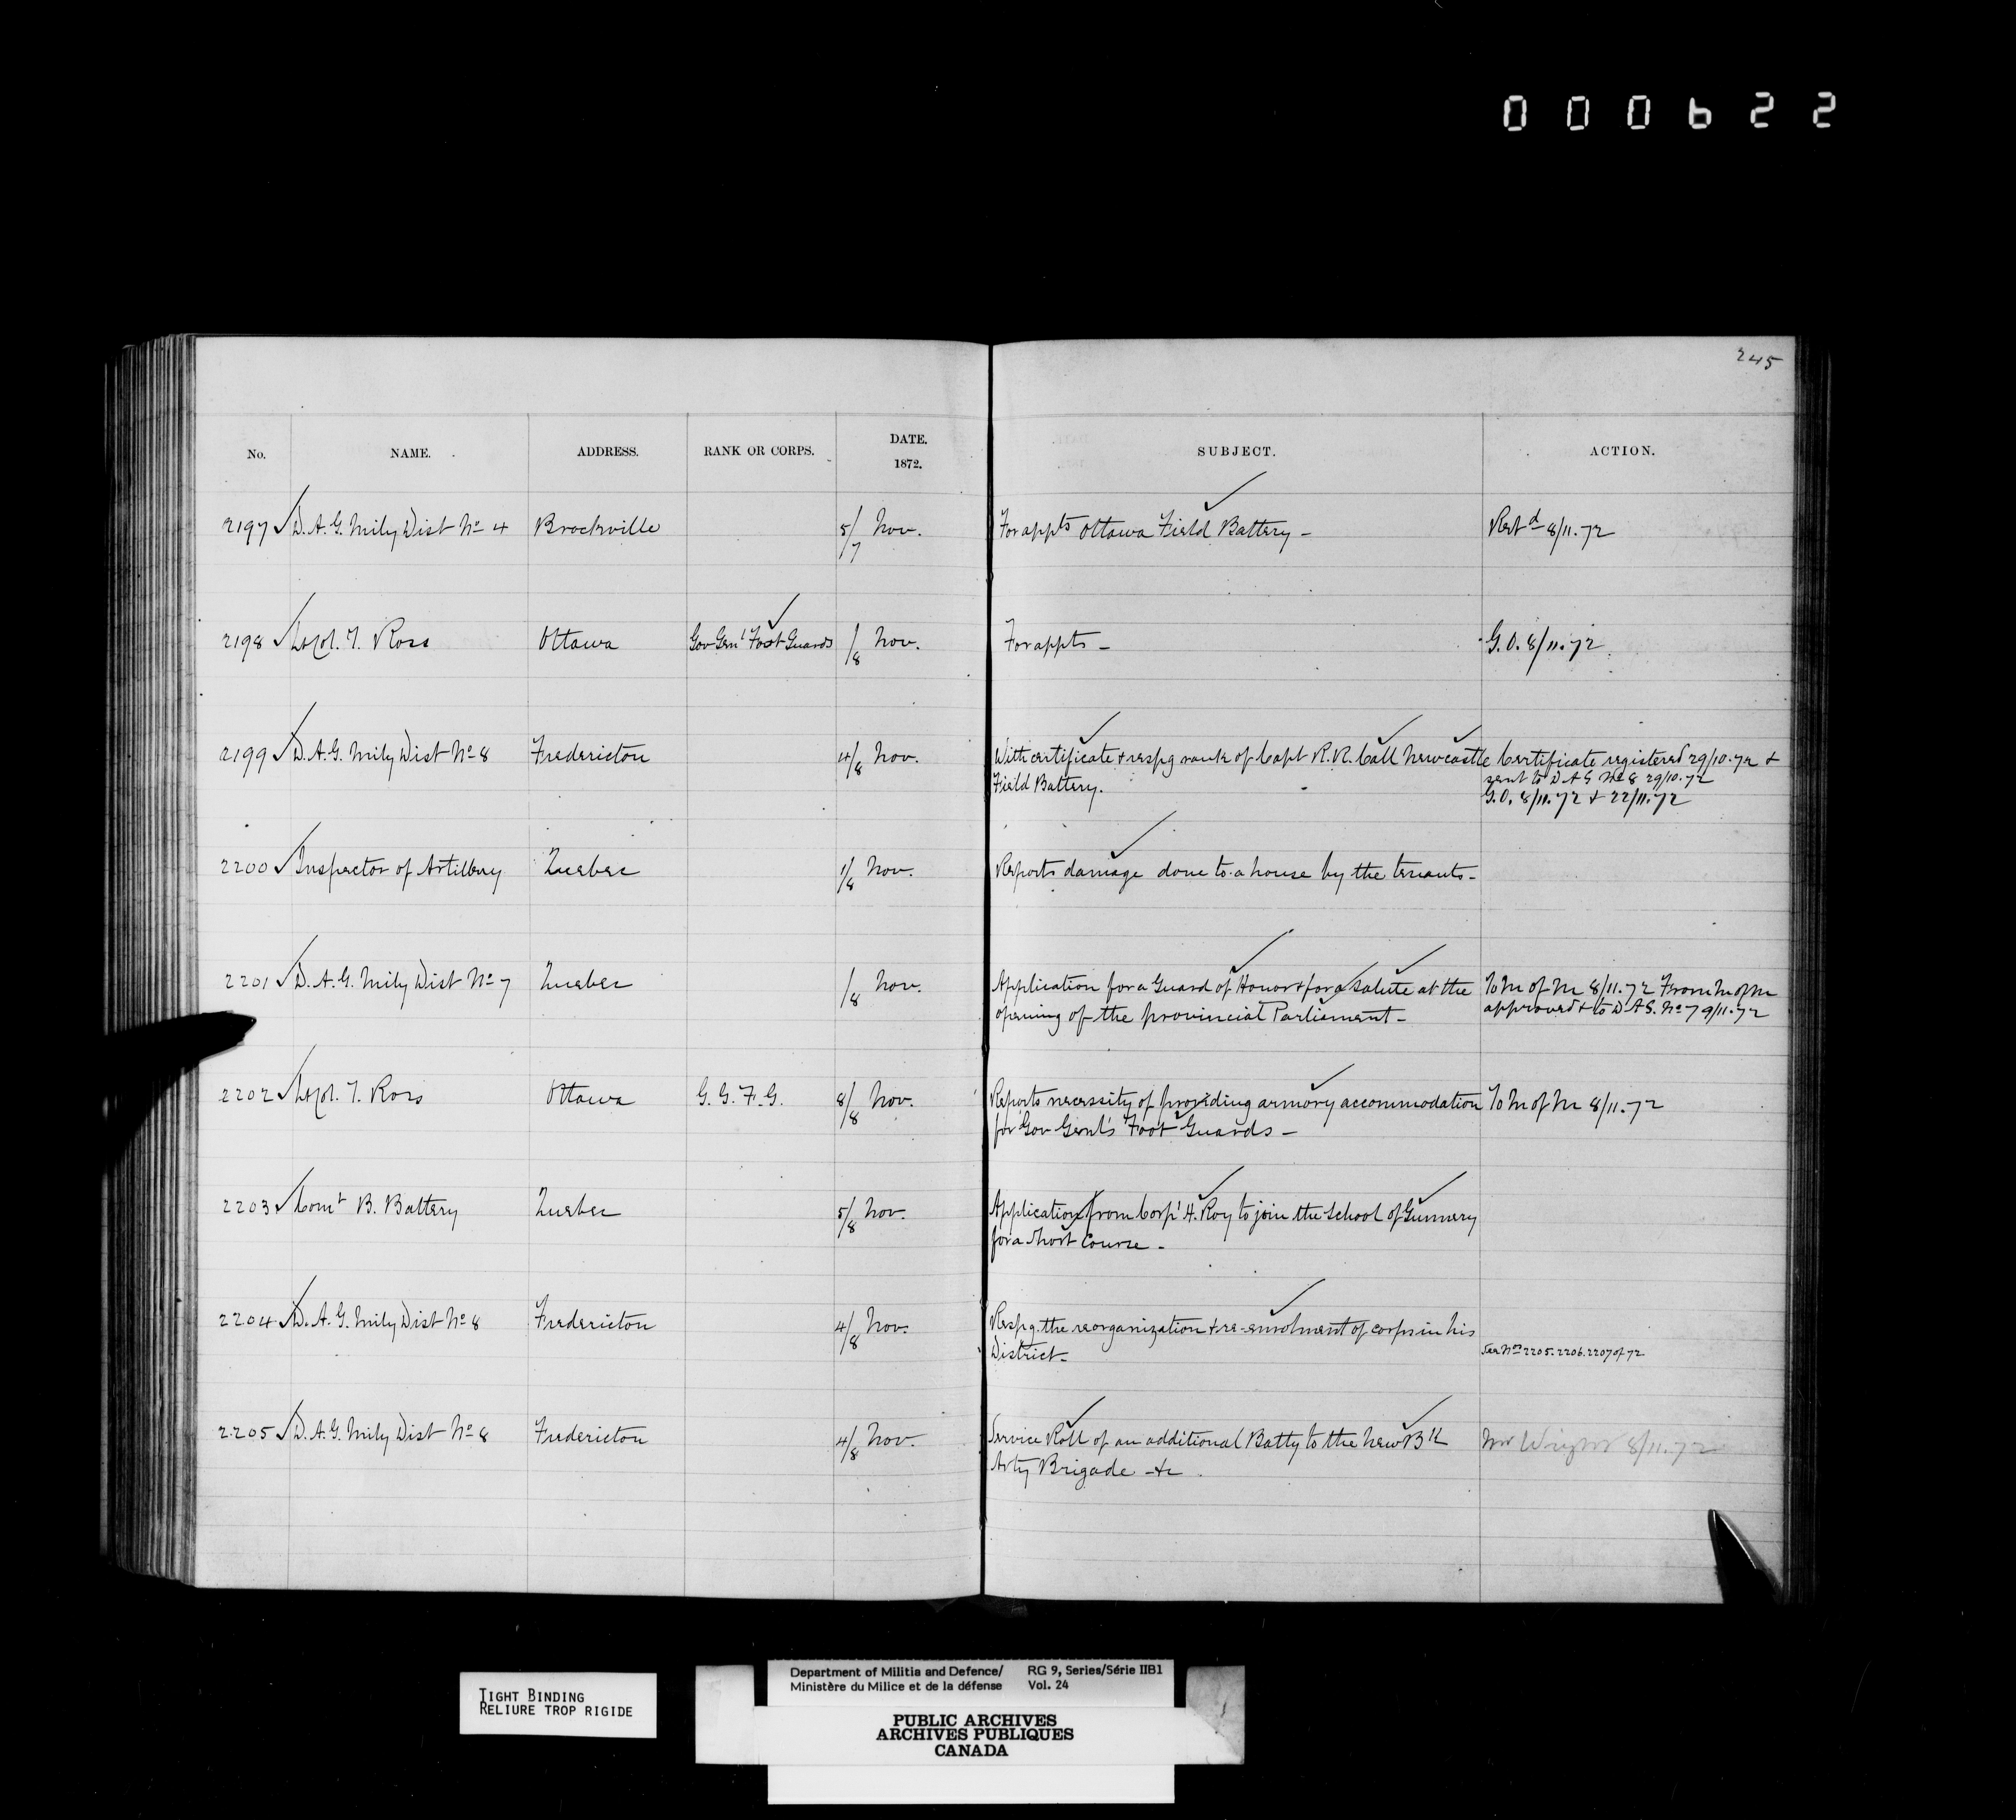 000622
245
No. NAME. ADDRESS. RANK OR CORPS. DATE. 1872. SUBJECT. ACTION.
2197 D. A. G. Mily Dist No 4 Brockville 5/7 Nov. For appts Ottawa Field Battery - Retd 8/11.72
2198 Lt Col. T. Ross Ottawa Gov Genl Foot Guards /8 Nov. For appts - G.O. 8/11.72
2199 D. A. G. Mily Dist No 8 Fredericton 4/8 Nov. With certificate & respg rank of Capt R. R. Call Newcastle Certificate registered 29/10.72 &
Field Battery. sent to D A G No 8 29/10.72
G.O. 8/11.72 & 22/11.72
2200 Inspector of Artillery Quebec 1/8 Nov. Reports damage done to a house by the tenants -
2201 D. A. G. Mily Dist No 7 Quebec /8 Nov. Application for a Guard of Honor & for a salute at the To M of M 8/11.72 From M of M
opening of the provincial Parliament - approved & to D A G. No 7 9/11.72
2202 Lt Col. T. Ross Ottawa G. G. F. G. 8/8 Nov. Reports necessity of providing armory accommodation To M of M 8/11.72
for Gov Genl's Foot Guards -
2203 Comt B. Battery Quebec 5/8 Nov. Application from Corpl H. Roy to join the School of Gunnery
for a short course -
2204 D. A. G. Mily Dist No 8 Fredericton 4/8 Nov. Respg. the reorganization & re-enrolment of corps in his
District - See Nos 2205. 2206. 2207 of 72
2205 D. A. G. Mily Dist No 8 Fredericton 4/8 Nov. Service Roll of an additional Batty to the New Bk Mr Wright 8/11.72
Arty Brigade - &c
TIGHT BINDING
RELIURE TROP RIGIDE
Department of Militia and Defence/ RG 9, Series/Série IIB1
Ministère du Milice et de la défense Vol. 24
PUBLIC ARCHIVES
ARCHIVES PUBLIQUES
CANADA